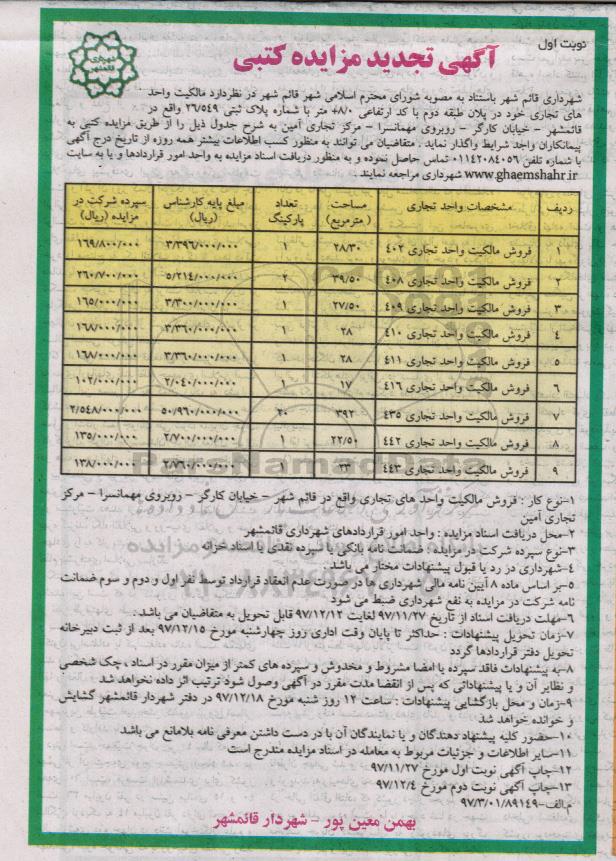 نوبت اول
شهرداری قائمشهر
آگهی تجدید مزایده کتبی
شهرداری قائم شهر باستناد به مصوبه شورای محترم اسلامی شهر قائم شهر در نظردارد مالکیت واحد
های تجاری خود در پلان طبقه دوم با کد ارتفاعی ۸/۰+ متر با شماره پلاک ثبتی ۲۶/۵۴۹ واقع در
قائمشهر – خیابان کارگر – روبروی مهمانسرا – مرکز تجاری آمین به شرح جدول ذیل را از طریق مزایده کتبی به
پیمانکاران واجد شرایط واگذار نماید . متقاضیان می توانند به منظور کسب اطلاعات بیشتر همه روزه از تاریخ درج آگهی
با شماره تلفن ۰۱۱۴۲۰۸۴۰۵۶ تماس حاصل نموده و به منظور دریافت اسناد مزایده به واحد امور قراردادها و یا به سایت
www.ghaemshahr.ir شهرداری مراجعه نمایند .
ردیف مشخصات واحد تجاری مساحت (مترمربع) تعداد پارکینگ مبلغ پایه کارشناس (ریال) سپرده شرکت در مزایده (ریال)
۱ فروش مالکیت واحد تجاری ۴۰۲ ۲۸/۳۰ ۱ ۳/۳۹۶/۰۰۰/۰۰۰ ۱۶۹/۸۰۰/۰۰۰
۲ فروش مالکیت واحد تجاری ۴۰۸ ۳۹/۵۰ ۲ ۵/۲۱۴/۰۰۰/۰۰۰ ۲۶۰/۷۰۰/۰۰۰
۳ فروش مالکیت واحد تجاری ۴۰۹ ۲۷/۵۰ ۱ ۳/۳۰۰/۰۰۰/۰۰۰ ۱۶۵/۰۰۰/۰۰۰
۴ فروش مالکیت واحد تجاری ۴۱۰ ۲۸ ۱ ۳/۳۶۰/۰۰۰/۰۰۰ ۱۶۸/۰۰۰/۰۰۰
۵ فروش مالکیت واحد تجاری ۴۱۱ ۲۸ ۱ ۳/۳۶۰/۰۰۰/۰۰۰ ۱۶۸/۰۰۰/۰۰۰
۶ فروش مالکیت واحد تجاری ۴۱۶ ۱۷ ۱ ۲/۰۴۰/۰۰۰/۰۰۰ ۱۰۲/۰۰۰/۰۰۰
۷ فروش مالکیت واحد تجاری ۴۳۵ ۳۹۲ ۲۰ ۵۰/۹۶۰/۰۰۰/۰۰۰ ۲/۵۴۸/۰۰۰/۰۰۰
۸ فروش مالکیت واحد تجاری ۴۴۲ ۲۲/۵۰ ۱ ۲/۷۰۰/۰۰۰/۰۰۰ ۱۳۵/۰۰۰/۰۰۰
۹ فروش مالکیت واحد تجاری ۴۴۳ ۲۳ ۱ ۲/۷۶۰/۰۰۰/۰۰۰ ۱۳۸/۰۰۰/۰۰۰
ParsNamadData
۱–نوع کار : فروش مالکیت واحد های تجاری واقع در قائم شهر – خیابان کارگر – روبروی مهمانسرا – مرکز
تجاری آمین
۲–محل دریافت اسناد مزایده : واحد امور قراردادهای شهرداری قائمشهر
۳–نوع سپرده شرکت در مزایده : ضمانت نامه بانکی یا سپرده نقدی یا اسناد خزانه
۴–شهرداری در رد یا قبول پیشنهادات مختار می باشد .
۵–بر اساس ماده ۸ آیین نامه مالی شهرداری ها در صورت عدم انعقاد قرارداد توسط نفر اول و دوم و سوم ضمانت
نامه شرکت در مزایده به نفع شهرداری ضبط می شود
۶–مهلت دریافت اسناد از تاریخ ۹۷/۱۱/۲۷ لغایت ۹۷/۱۲/۱۲ قابل تحویل به متقاضیان می باشد .
۷–زمان تحویل پیشنهادات : حداکثر تا پایان وقت اداری روز چهارشنبه مورخ ۹۷/۱۲/۱۵ بعد از ثبت دبیرخانه
تحویل دفتر قراردادها گردد
۸–به پیشنهادات فاقد سپرده یا امضا مشروط و مخدوش و سپرده های کمتر از میزان مقرر در اسناد ، چک شخصی
و نظایر آن و یا پیشنهاداتی که پس از انقضا مدت مقرر در آگهی وصول شود ترتیب اثر داده نخواهد شد
۹–زمان و محل بازگشایی پیشنهادات : ساعت ۱۲ روز شنبه مورخ ۹۷/۱۲/۱۸ در دفتر شهردار قائمشهر گشایش
و خوانده خواهد شد
۱۰–حضور کلیه پیشنهاد دهندگان و یا نمایندگان آن با در دست داشتن معرفی نامه بلامانع می باشد
۱۱–سایر اطلاعات و جزئیات مربوط به معامله در اسناد مزایده مندرج است
۱۲–چاپ آگهی نوبت اول مورخ ۹۷/۱۱/۲۷
۱۳–چاپ آگهی نوبت دوم مورخ ۹۷/۱۲/۴
م.الف–۹۷/۳/۰۱/۸۹۱۴۹
بهمن معین پور – شهردار قائمشهر